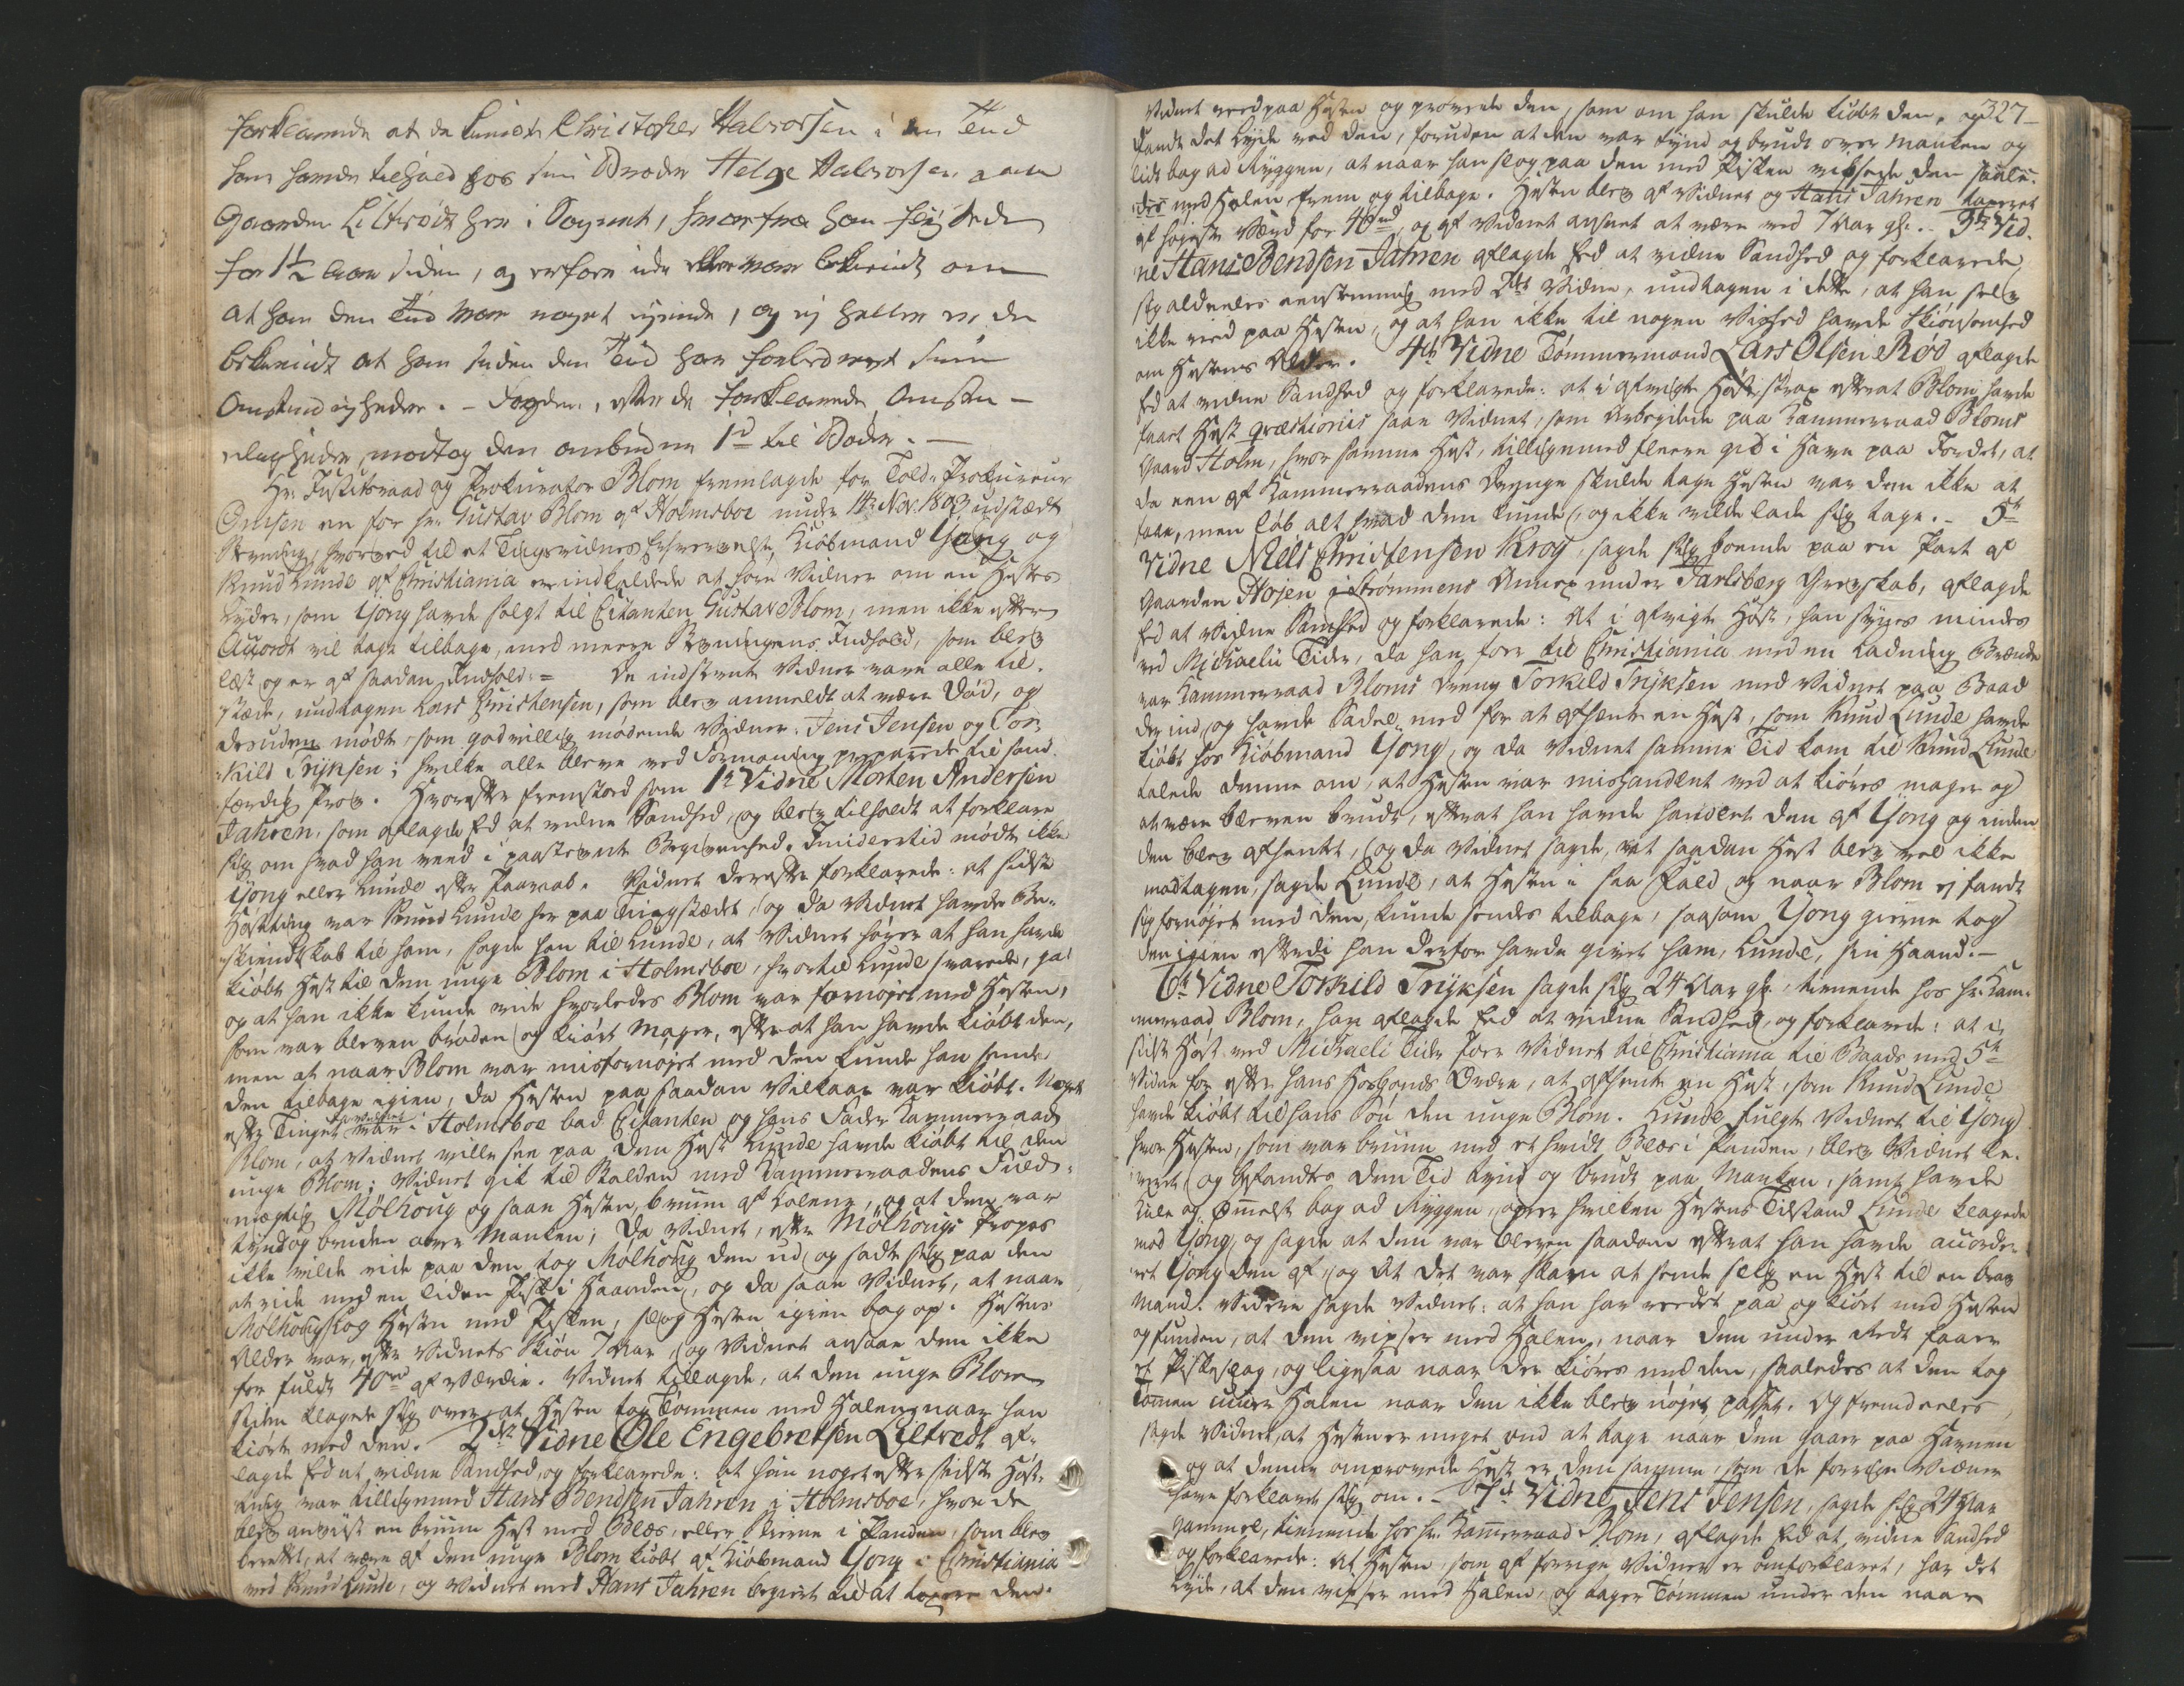 forklarede at da Lensm. Christopher Halvorsen i sin Tid
som havde tilhold hos sin Broder Helge Halvorsen paa
Gaarden Liltvedt her i Sognet, hvorfra han flyttede
for 1½ Aar siden, og erfore ikke eller var bekiendt om
at han den Tid var noget ejende, og ej heller er det
bekiendt at han siden den Tid har forbedret sine
Omstændigheder. - Fogden, efter de forklarede Omstæn-
deligheder, modtog den anbudne 1rd til Bøder. -
Hr. Justitsraad og Prokurator Blom fremlagde for Told-Prokureur
Omsen en for hr. Gustav Blom af Holmsboe under 14de Nov. 1803 udstædt
Stevning, hvorved til et Tingsvidnes Erhvervelse Kiøbmand Yong og
Knud Lunde af Christiania ere indkaldede at høre Vidner om en Hestes
Lyder, som Yong havde solgt til Citanten Gustav Blom, men ikke efter
Accordt vil tage tilbage, med mere Stevningens Indhold, som blev
læst og er af saadan Indhold: = De indstevnte Vidner vare alle til
stæde, undtagen Lars Christensen, som blev anmeldt at være død, og
desuden mødte, som godvillig mødende Vidner: Jens Jensen og Tor-
kild Tryksen; hvilke alle bleve ved Formaning præparerede til sand-
færdig Prov. Hvorefter fremstod som 1te Vidne Morten Andersen
Jahren, som aflagde Ed at vidne Sandhed, og blev tilholdt at forklare
sig om hvad han veed i paastevnte Begivenhed. Imidlertid mødte ikke
Yong eller Lunde efter Paaraab. Vidnet derefter forklarede: at sidste
Høstting var Knud Lunde her paa Tingstædet, og da Vidnet havde Be-
kiendtskab til ham, sagde han til Lunde, at Vidnet hører at han havde
kiøbt Hest til den unge Blom i Holmsboe, hvortil Lunde svarede, ja!
og at han ikke kunde vide hvorledes Blom var fornøjet med Hesten,
som var bleven brøden og kiørt mager, efter at han havde kiøbt den,
men at naar Blom var misfornøjet med den kunde han sende
den tilbage igien, da Hesten paa saadan Vilkaar var kiøbt. Noget
efter Tinget var Vidnet i Holmsboe bad Citanten og hans Fader Kammerraad
Blom, at Vidnet ville see paa den Hest Lunde havde kiøbt til den
unge Blom; Vidnet gik til Stalden med Kammerraadens Fuld-
mægtig Mølhoug og saae Hesten, bruun af Couleur, og at den var
tynd og bruden over Manken; Da Vidnet, efter Mølhougs Propos
ikke vilde ride paa den, tog Mølhoug den ud, og sadte sig paa den
at ride med en liden Pisk i Haanden, og da saae Vidnet, at naar
Mølhoug slog Hesten med Pisken, slog Hesten igien bag op. Hestens
Alder var, efter Vidnets Skiøn 7 Aar, og Vidnet ansaae den ikke
for fuldt 40rd af Værdie. Vidnet tillagde, at den unge Blom
siden klagede sig over, at Hesten tog Tømmen med Halen, naar han
kiørte med den. 2det Vidne Ole Engebretsen Liltvedt af-
lagde Ed at vidne Sandhed, og forklarede: at han noget efter sidste Høst-
ting var tilligemed Hans Bendsen Jahren i Holmsboe, hvor de
blev anviist en bruun Hest med Blæs, eller Stierne i Panden, som blev
berettet, at være af den unge Blom kiøbt af Kiøbmand Yong i Christiania
ved Knud Lunde, og Vidnet med Hans Jahren begiert til at taxere den.
327
Vidnet reed paa Hesten og prøvede den, som om han skulde kiøbt den, og
fandt det Lyde ved den, foruden at den var tynd og brudt over Manken og
lidt bag ad Ryggen, at naar han slog paa den med Pisken vipsede den saale-
des med Halen frem og tilbage. Hesten blev af Vidnet og Hans Jahren taxeret
af højeste Værd for 40rd, og af Vidnet anseet at være ved 7 Aar gl. - 3die Vid-
ne Hans Bendsen Jahren aflagde Ed at vidne Sandhed og forklarede
sig aldeeles eenstemmig med 2det Vidne, undtagen i dette, at han selv
ikke reed paa Hesten, og at han ikke til nogen Vished havde Skiønsomhed
om Hestens Alder. 4de Vidne Tømmermand Lars Olsen Rød aflagde
Ed at vidne Sandhed og forklarede: at i afvigte Høst, strax efterat Blom havde
faaet Hest quæstionis saae Vidnet, som arbejdede paa Kammerraad Bloms
Gaard Holm, hvor samme Hest, tilligemed fleere gik i Havn paa Jordet, at
da een af Kammerraadens Drenge skulde tage Hesten var den ikke at
faae, men løb alt hvad den kunde, og ikke vilde lade sig tage. - 5te
Vidne Niels Christensen Krog, sagde sig boende paa en Part af
Gaarden Højen i Strømmens Annex under Jarlsberg Grevskab, aflagde
Ed at vidne Sandhed og forklarede: At i afvigte Høst, han synes mindes
ved Michaelis Tider, da han foer til Christiania med en Ladning Brænde
var Kammerraad Bloms Dreng Torkild Tryksen med Vidnet paa Baad
der ind, og havde Sadel med for at afhente en Hest, som Knud Lunde havde
kiøbt hos Kiøbmand Yong, og da Vidnet samme Tid kom til Knud Lunde
talede denne om, at Hesten var mishandlet ved at kiøres mager og
at være bleven brudt, efterat han havde handlet den af Yong og inden
den blev afhentet, og da Vidnet sagde, at saadan Hest blev vel ikke
modtagen, sagde Lunde, at Hesten i saa Fald og naar Blom ej fandt
sig fornøjet med den, kunde sendes tilbage, saasom Yong gierne tog
den igien efterdi han derfor havde givet ham, Lunde, sin Haand. -
6te Vidne Torkild Tryksen sagde sig 24 Aar gl. tienende hos hr. Kam-
merraad Blom, han aflagde Ed at vidne Sandhed, og forklarede: at i
sidste Høst ved Michaeli Tider foer Vidnet til Christiania til Baads med 5te
Vidne for efter hans Hosbonds Ordre, at afhente en Hest, som Knud Lunde
havde kiøbt til hans Søn den unge Blom. Lunde fulgte Vidnet til Yong
hvor Hesten, som var bruun med et hvidt Blæs i Panden, blev Vidnet le-
veret, og befandtes den Tid tynd og brudt paa Manken, samt havde
Kule og Ømhed bag ad Ryggen, over hvilken Hestens Tilstand Lunde klagede
mod Yong, og sagde at den var bleven saadan efterat han havde accorde-
ret Yong den af, og at det var Skam at sende selv en Hest til en brav
Mand. Videre sagde Vidnet: at han har reedet paa og kiørt med Hesten
og funden, at den vipser med Halen, naar den under Redt faaer
et Piskeslag, og ligesaa naar der kiøres med den, saaledes at den tog
Tømmen under Halen naar den ikke blev nøje passet. Og fremdeeles
sagde Vidnet, at Hesten er meget ond at tage naar den gaaer paa Havnen
og at denne omprovede Hest er den samme, som de forrige Vidner
have forklaret sig om. - 7de Vidne Jens Jensen, sagde sig 24 Aar
gammel, tienende hos hr. Kammerraad Blom, aflagde Ed at vidne Sandhed
og forklarede: At Hesten, som af forrige Vidner er omforklaret, har det
Lyde, at den vipser med Halen, og tager Tømmen under den naar